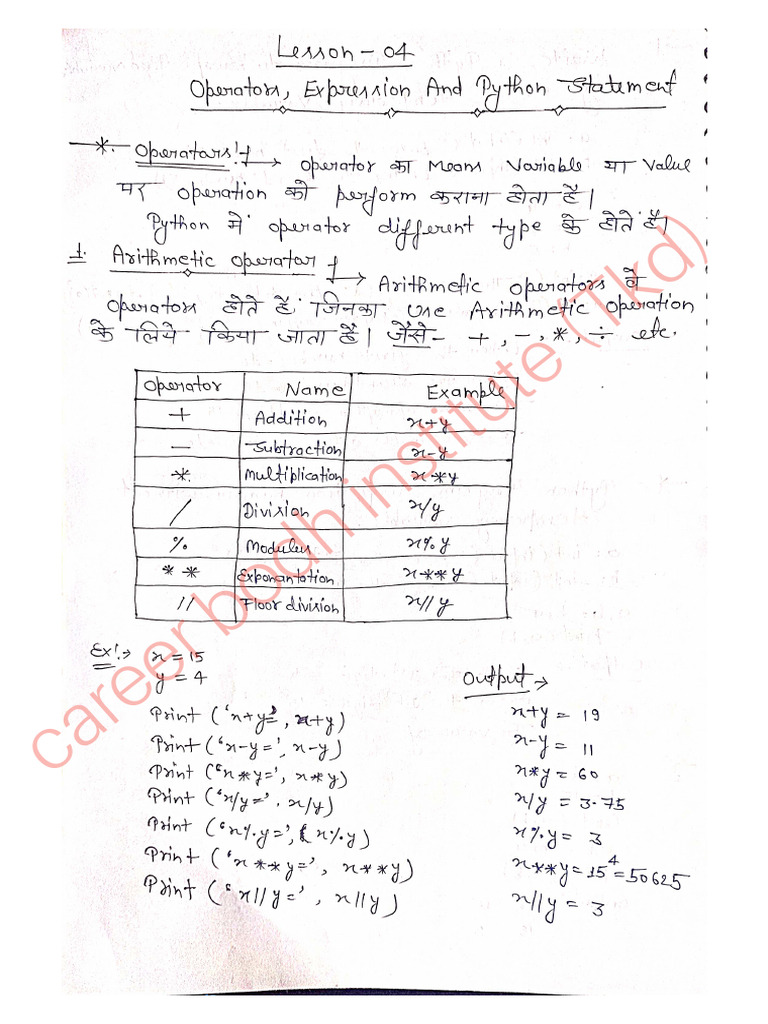 Lesson - 04
Operators, Expression And Python Statement
* Operatars:- → operator का Means Variable या Value
पर operation को perform कराना होता है।
Python में operator different type के होते है।
1. Arithmetic operator :- → Arithmetic operators वे
operators होते है, जिनका use Arithmetic operation
के लिये किया जाता है। जैसे- +, -, *, ÷ etc.
Operator Name Example
+ Addition x+y
- Subtraction x-y
* Multiplication x*y
/ Division x/y
% Modulus x%y
** Exponantotion x**y
// Floor division x//y
Ex:→ x = 15
y = 4
Output →
Print ('x+y=', x+y)
Print ('x-y=', x-y)
Print ('x*y=', x*y)
Print ('x/y=', x/y)
Print ('x%y=', (x%y)
Print ('x**y=', x**y)
Print ('x//y=', x//y)
x+y = 19
x-y = 11
x*y = 60
x/y = 3.75
x%y = 3
x**y = 15⁴ = 50625
x//y = 3
career bodh institute (Tkd)